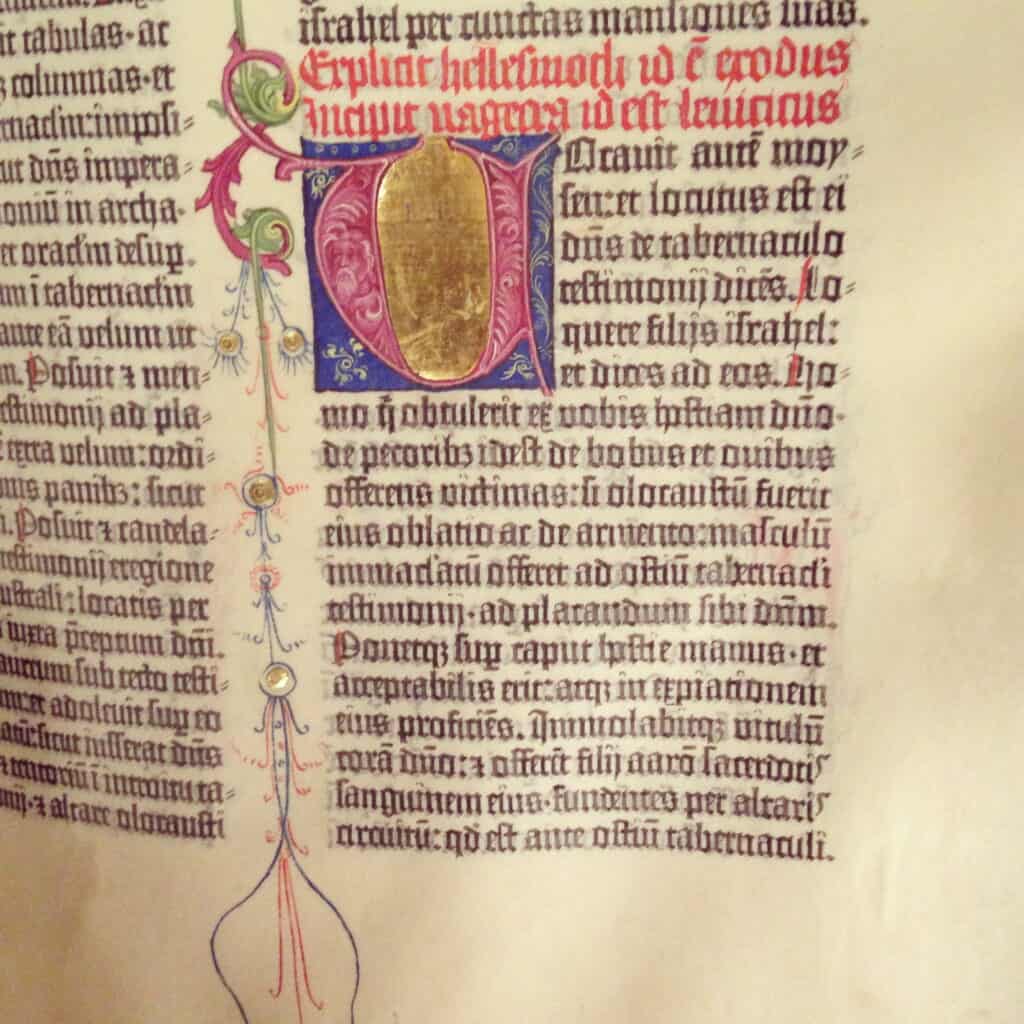 it tabulas·ac
columnas·et
imposi=
ut dn̄s impera=
in archa·
et oraclm̄ desup̄.
ī tabernaclm̄
ante eā velum ut
Posuit ⁊ men=
ad pla=
extra velum:ordi=
panibꝫ: sicut
Posuit ⁊ candela=
testimonij eregione
locatis per
iuxta p̄ceptum dn̄i.
sub tecto testi=
et adoleuit sup̄ eo
sicut iusserat dn̄s
⁊ tentoriū ī introitu ta=
⁊ altare olocausti
israhel per cunctas mansiones suas.
Explicit hellesmoth id ē exodus
Incipit vagecra id est leuiticus
Uocauit autē moy=
sen:et locutus est ei
dn̄s de tabernaculo
testimonij dicēs. Lo=
quere filijs israhel:
et dices ad eos. Ho=
mo q̄ obtulerit ex vobis hostiam dn̄o·
de pecoribꝫ idest de bobus et ouibus
offerens victimas: si olocaustū fuerit
eius oblatio ac de armento:masculū
immaclatū offeret ad ostiū tabernacli
testimonij·ad placandum sibi dn̄m.
Ponetqꝫ sup̄ caput hostie manus·et
acceptabilis erit:atqꝫ in expiationem
eius proficiēs. Immolabitqꝫ vitulū
corā dn̄o: ⁊ offerēt filij aarō sacerdotis
sanguinem eius·fundentes per altaris
circuitū: qd̄ est ante ostiū tabernaculi.